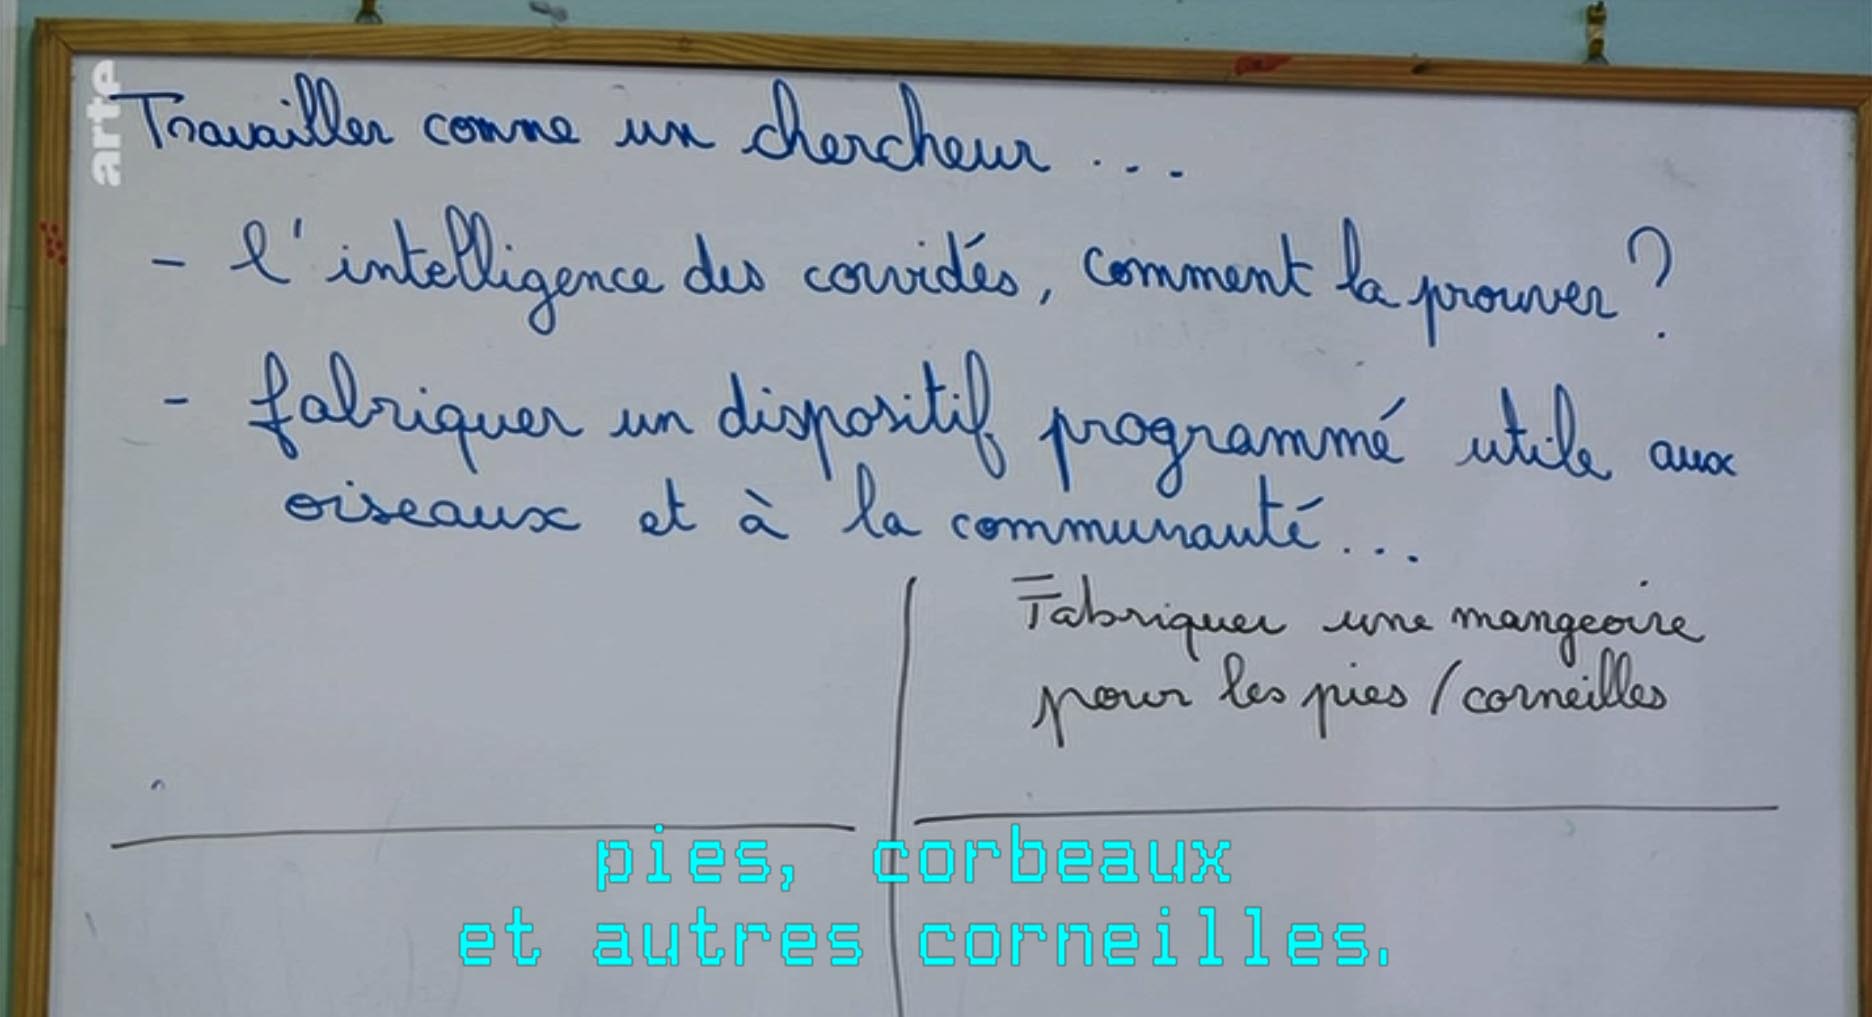 arte
Travailler comme un chercheur ...
- l'intelligence des corvidés, comment la prouver ?
- fabriquer un dispositif programmé utile aux
oiseaux et à la communauté...
Fabriquer une mangeoire
pour les pies / corneilles
pies, corbeaux
et autres corneilles.